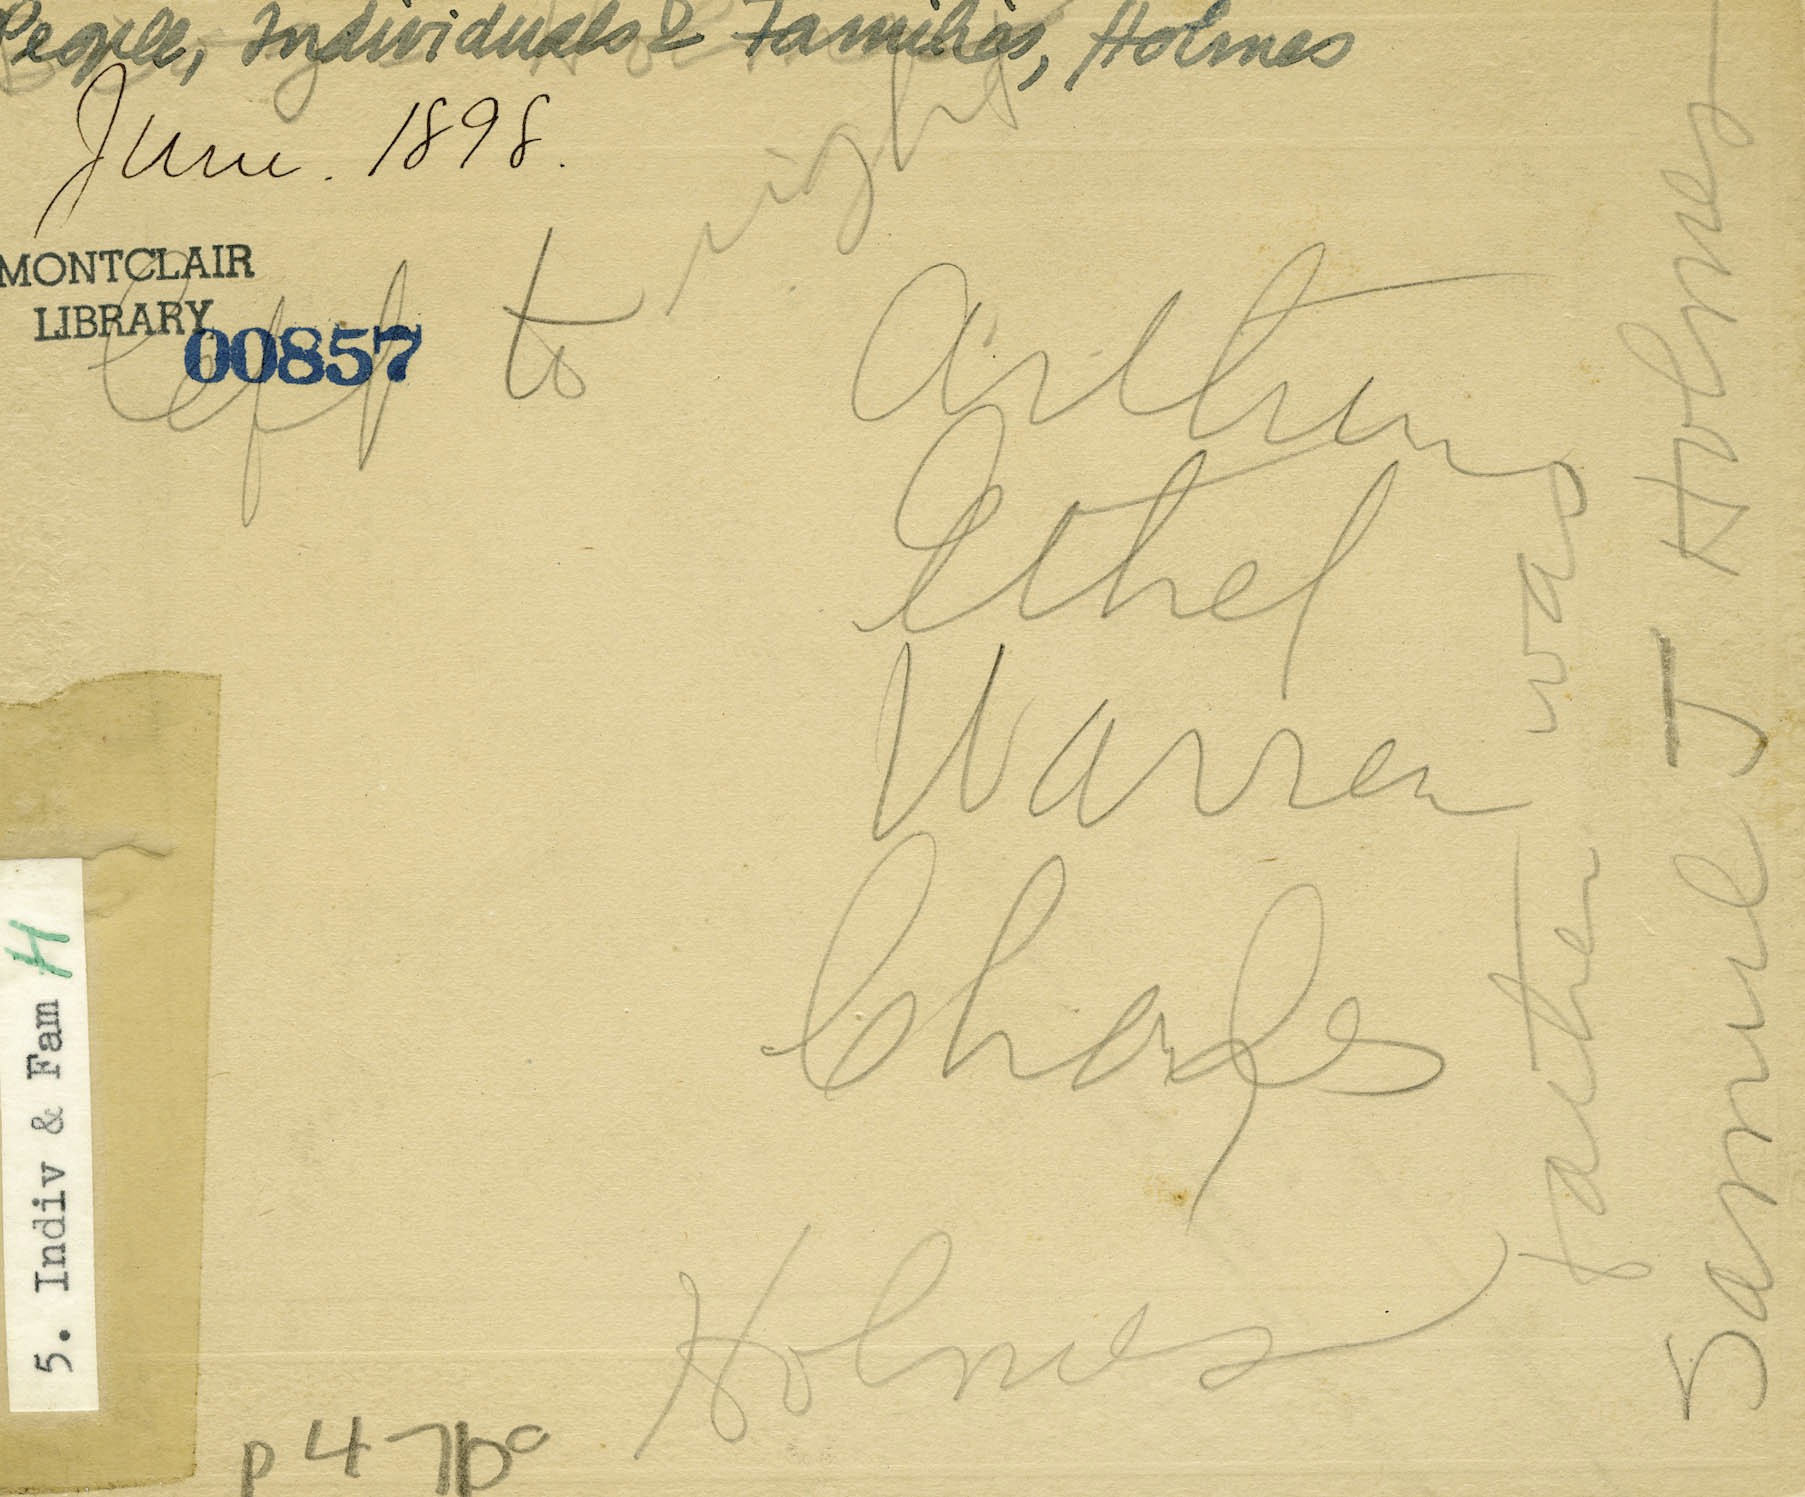 People, Individuals & Families, Holmes
June. 1898.
MONTCLAIR
LIBRARY
00857
left to right
Arthur
Ethel
Warren
Charles
Holmes
father was
Samuel J Holmes
5. Indiv & Fam H
p 47